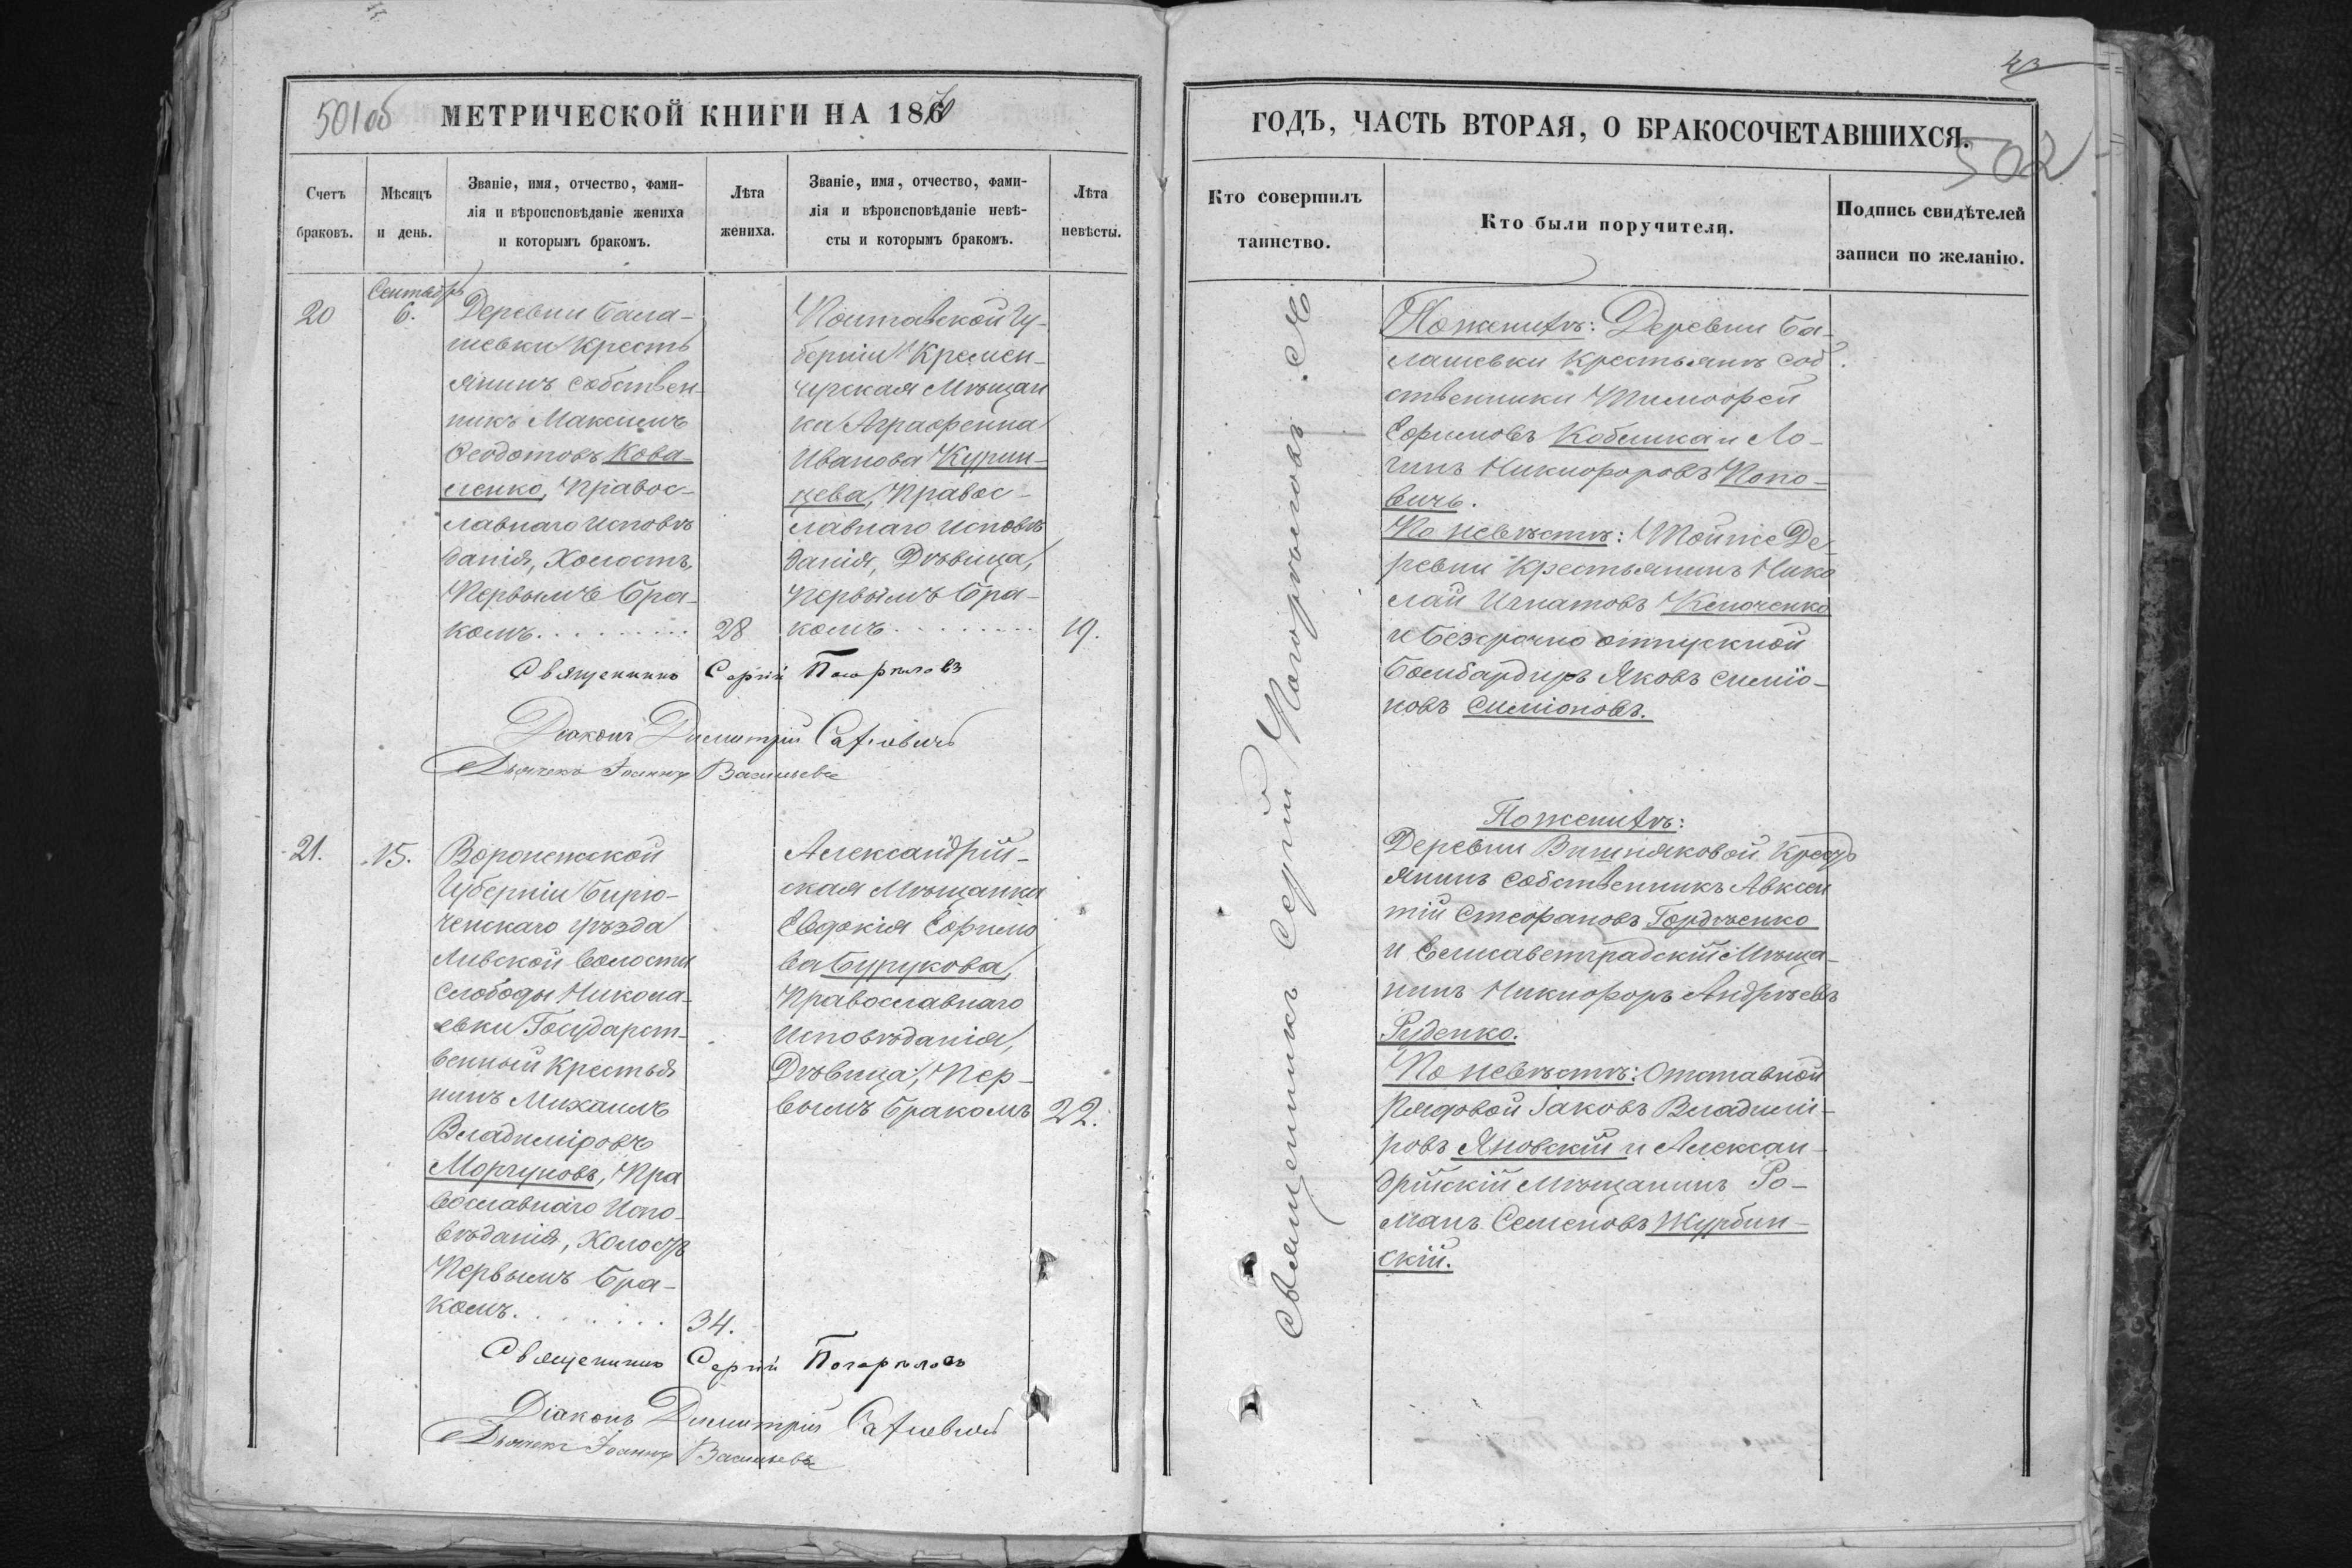 501об
МЕТРИЧЕСКОЙ КНИГИ НА 1870
Счетъ
браковъ.
Мѣсяцъ
и день.
Званіе, имя, отчество, фами-
лія и вѣроисповѣданіе жениха
и которымъ бракомъ.
Лѣта
жениха.
Званіе, имя, отчество, фами-
лія и вѣроисповѣданіе невѣ-
сты и которымъ бракомъ.
Лѣта
невѣсты.
20
Сентябрь
6.
Деревни Бала-
шевки Кресть
янинъ собствен-
никъ Максимъ
Ѳеодотовъ Кова-
ленко, Правос-
лавнаго исповѣ
данія, Холостъ,
Первымъ Бра-
комъ.........
28
Полтавской Гу-
берніи Кремен-
чугская Мѣщан
ка Аграфенна
Иванова Курин-
цева, Правос-
лавнаго исповѣ
данія, Дѣвица,
первымъ Бра-
комъ........
19.
Священникъ Сергій Погорѣловъ
Діаконъ Димитрій
Дьячекъ Іоаннъ Васильевъ
21.
15.
Воронежской
Губерніи Бирю-
ченскаго уѣзда
Ливской волости
Слободы Никола-
евки Государст-
венный Крестья
нинъ Михаилъ
Владиміровъ
Моргуновъ, Пра
вославнаго Испо-
вѣданія, Холостъ
Первымъ Бра-
комъ........
34.
Александрій-
ская Мѣщанка
Евдокія Ефимо
ва Бурукова,
Православнаго
Исповѣданія,
Дѣвица, Пер-
вымъ бракомъ
22.
Священникъ Сергій Погорѣловъ
Діаконъ Димитрій
Дьячекъ Іоаннъ Васильевъ
43
502
ГОДЪ, ЧАСТЬ ВТОРАЯ, О БРАКОСОЧЕТАВШИХСЯ.
Кто совершилъ
таинство.
Кто были поручители.
Подпись свидѣтелей
записи по желанію.
Священникъ Сергій Погорѣловъ.
По женихѣ: Деревни Ба-
лашевки Крестьянинъ соб
ственники Тимофей
Ефимовъ Кобилка и Ло-
гинъ Никифоровъ Попо-
вичъ.
По невѣстѣ: Той же Де-
ревни Крестьянинъ Нико
лай Игнатовъ Ключенко
и безсрочно отпускной
Бомбардиръ Яковъ Симіо-
новъ Симіоновъ.
По женихѣ:
Деревни Вишняковой Кресть
янинъ собственникъ Авксен
тій Стефановъ Гордѣенко
и Елисаветградскій Мѣща-
нинъ Никифоръ Андрѣевъ
Руденко.
По невѣстѣ: Отставной
Рядовой Іаковъ Владимі-
ровъ Яновскій и Алексан-
дрійскій Мѣщанинъ Ро-
манъ Семеновъ Журбин-
скій.